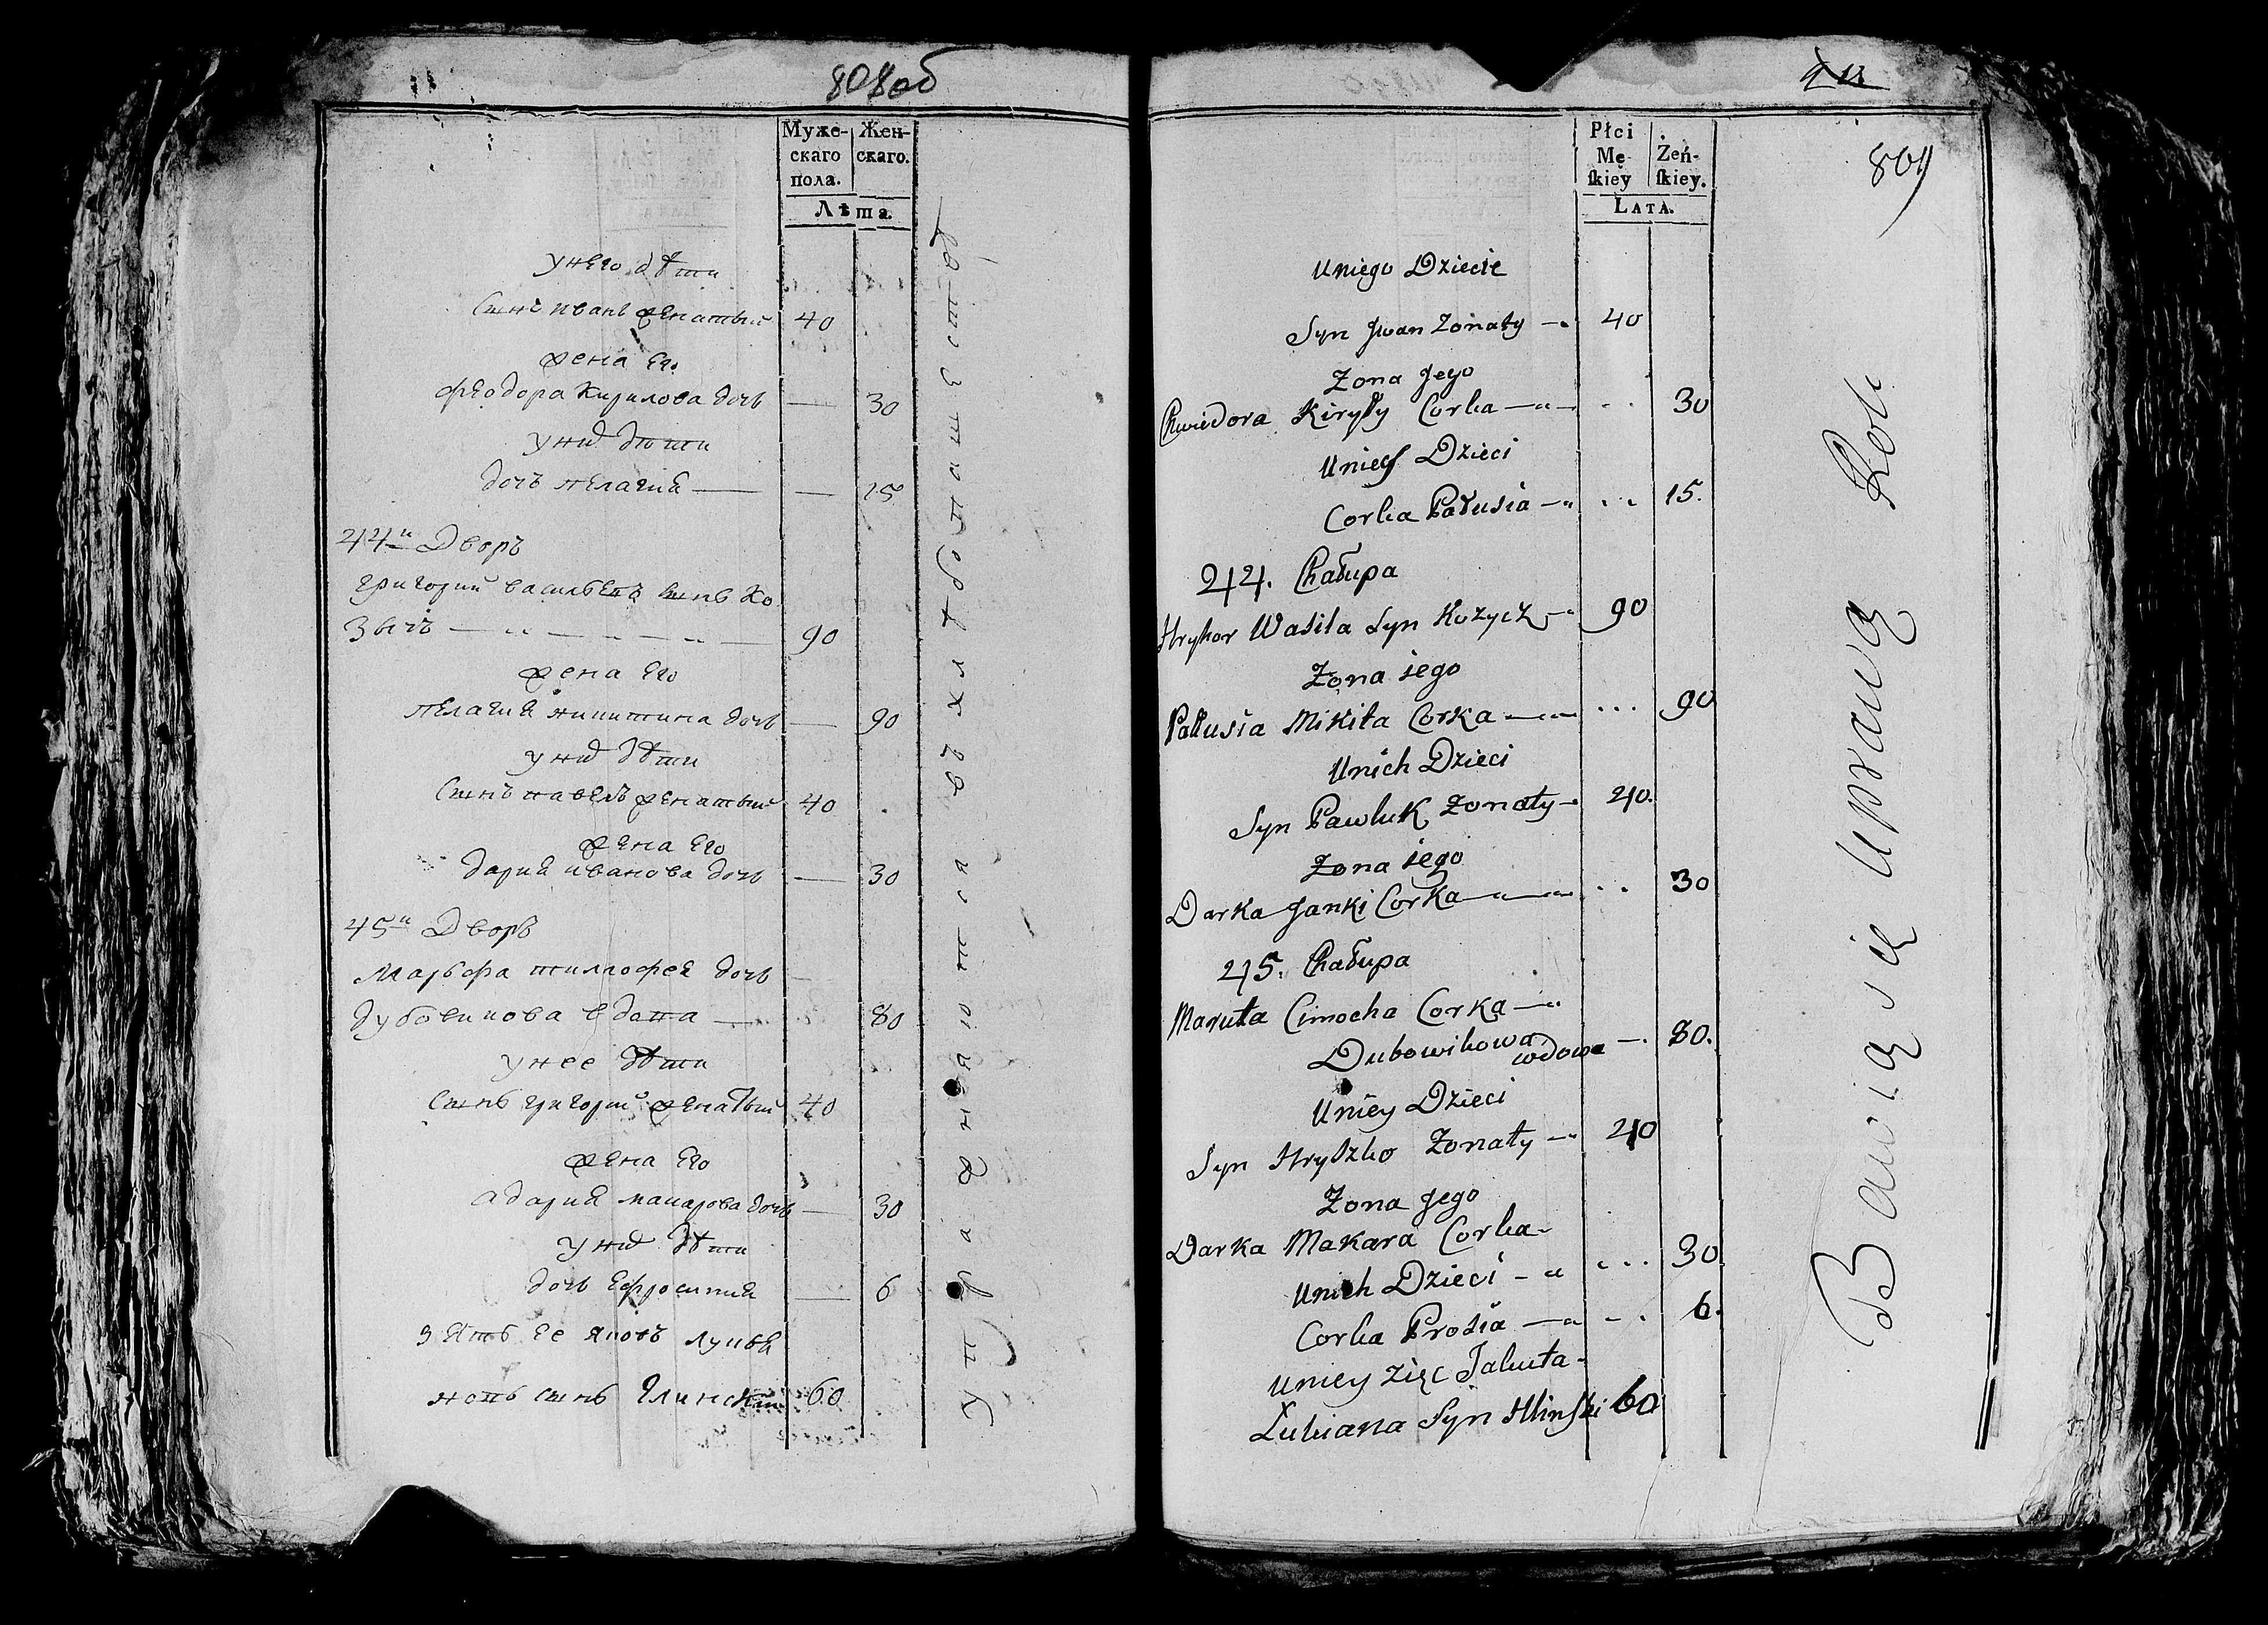 808об
Муже-
скаго
пола.
Жен-
скаго.
Лѣта.
у него дѣти
Сынъ иванъ женатый 40
жена его
феодора Кирилова дочь — 30
у них дѣти
дочь пелагия — — 15
44й Дворъ
григорий васильевъ сынъ Ко
зычъ — 90
жена его
пелагия никитина дочь — 90
у них дѣти
Сынъ павелъ женатый 40
жена его
дария иванова дочь — 30
45й Дворъ
Марфа тимофея дочь —
дубовикова вдова — 80
у нее дѣти
Сынъ григорий женатый 40
жена его
дария макарова дочь — 30
у них дѣти
дочь ефросиния — 6
зять ее яковъ лукья
новъ сынъ Глинский 60
809
Płci
Mę-
skiey
Żeń-
skiey.
LATA.
Uniego Dziecie
Syn Jwan Zonaty — 40
Zona Jego
Chwiedora Kiryły Corka — .. 30
Unich Dzieci
Corka Pałusia — ... 15.
44. Chałupa
Hryhor Wasila Syn Kozycz — 90
Zona iego
Pałusia Mikita Corka — ... 90
Unich Dzieci
Syn Pawluk Zonaty — 40.
Zona iego
Darka Janki Corka — .. 30
45. Chałupa
Maruta Cimocha Corka —
Dubowikowa wdowa — 80.
Uniey Dzieci
Syn Hryszko Zonaty — 40
Zona Jego
Darka Makara Corka - ... 30
Unich Dzieci -
Corka Prosia — .. 6.
Uniey zięc Jakuta -
Łukiana Syn Hlinski 60
Bawią się Uprawą Roli